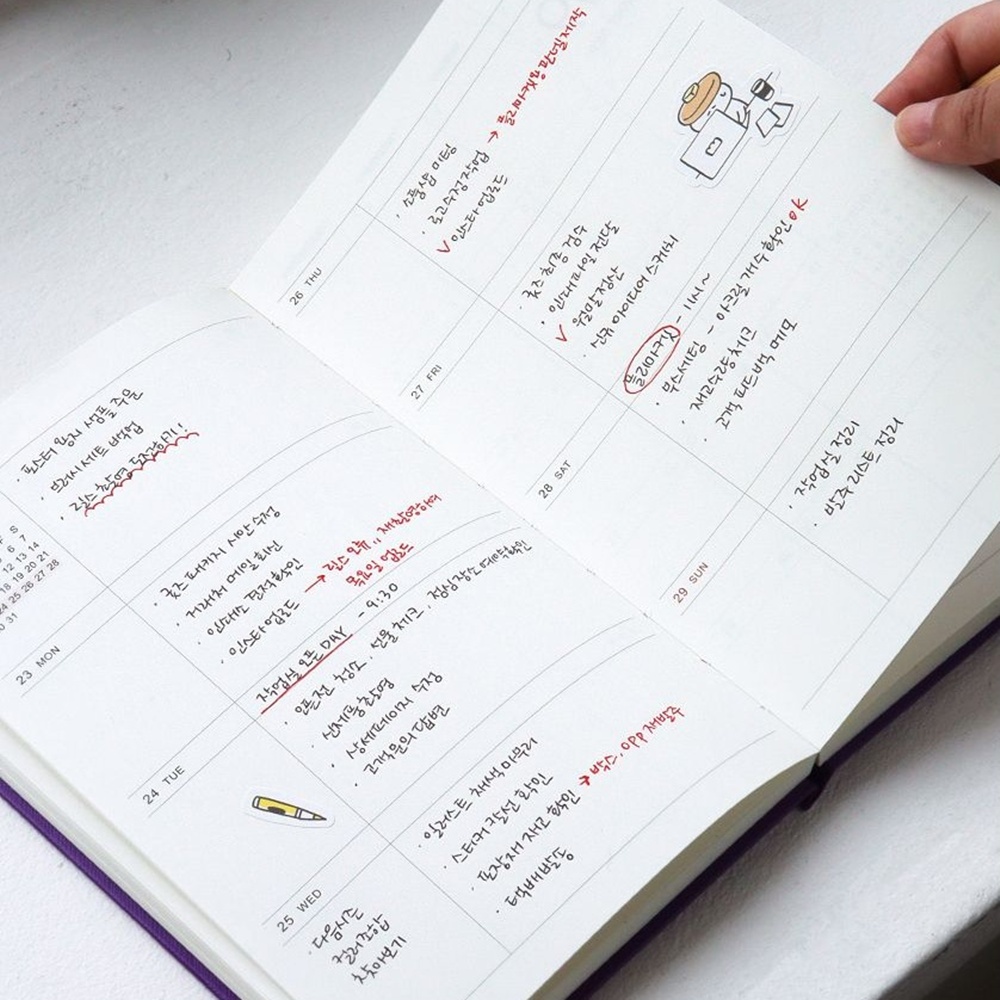 S
6 7
12 13 14
18 19 20 21
24 25 26 27 28
30 31
· 포스터 임시 샘플 주일
· 브러시 세트 백업
· 릴스 촬영 도전하기!
23 MON
· 굿즈 패키지 시안 수정
· 거래처 메일 회신
· 인쇄소 견적확인
· 인스타 업로드 → 릴스 오류,, 재촬영하여
목욜일 업로드
24 TUE
작업실 오픈 DAY - 9:30
· 오픈전 청소 · 선물 체크 · 점심장소 예약확인
· 신제품촬영
· 상세페이지 수정
· 고객문의 답변
25 WED
· 다음시즌
컬러조합
찾아보기
· 일러스트 채색 마무리
· 스티커 칼선 확인
· 포장재 재고 확인 ★박스, opp 재발주
· 택배발송
26 THU
· 소품샵 미팅
· 로고수정작업 →
✓ 인스타 업로드
27 FRI
· 굿즈 최종 검수
· 인쇄파일 전달
✓ 월말정산
· 신규 아이디어 스케치
28 SAT
플리마켓 - 11시~
· 부스세팅 - 아크릴 개수확인 OK
· 재고수량 체크
· 고객 피드백 메모
29 SUN
· 작업실 정리
· 발주 리스트 정리